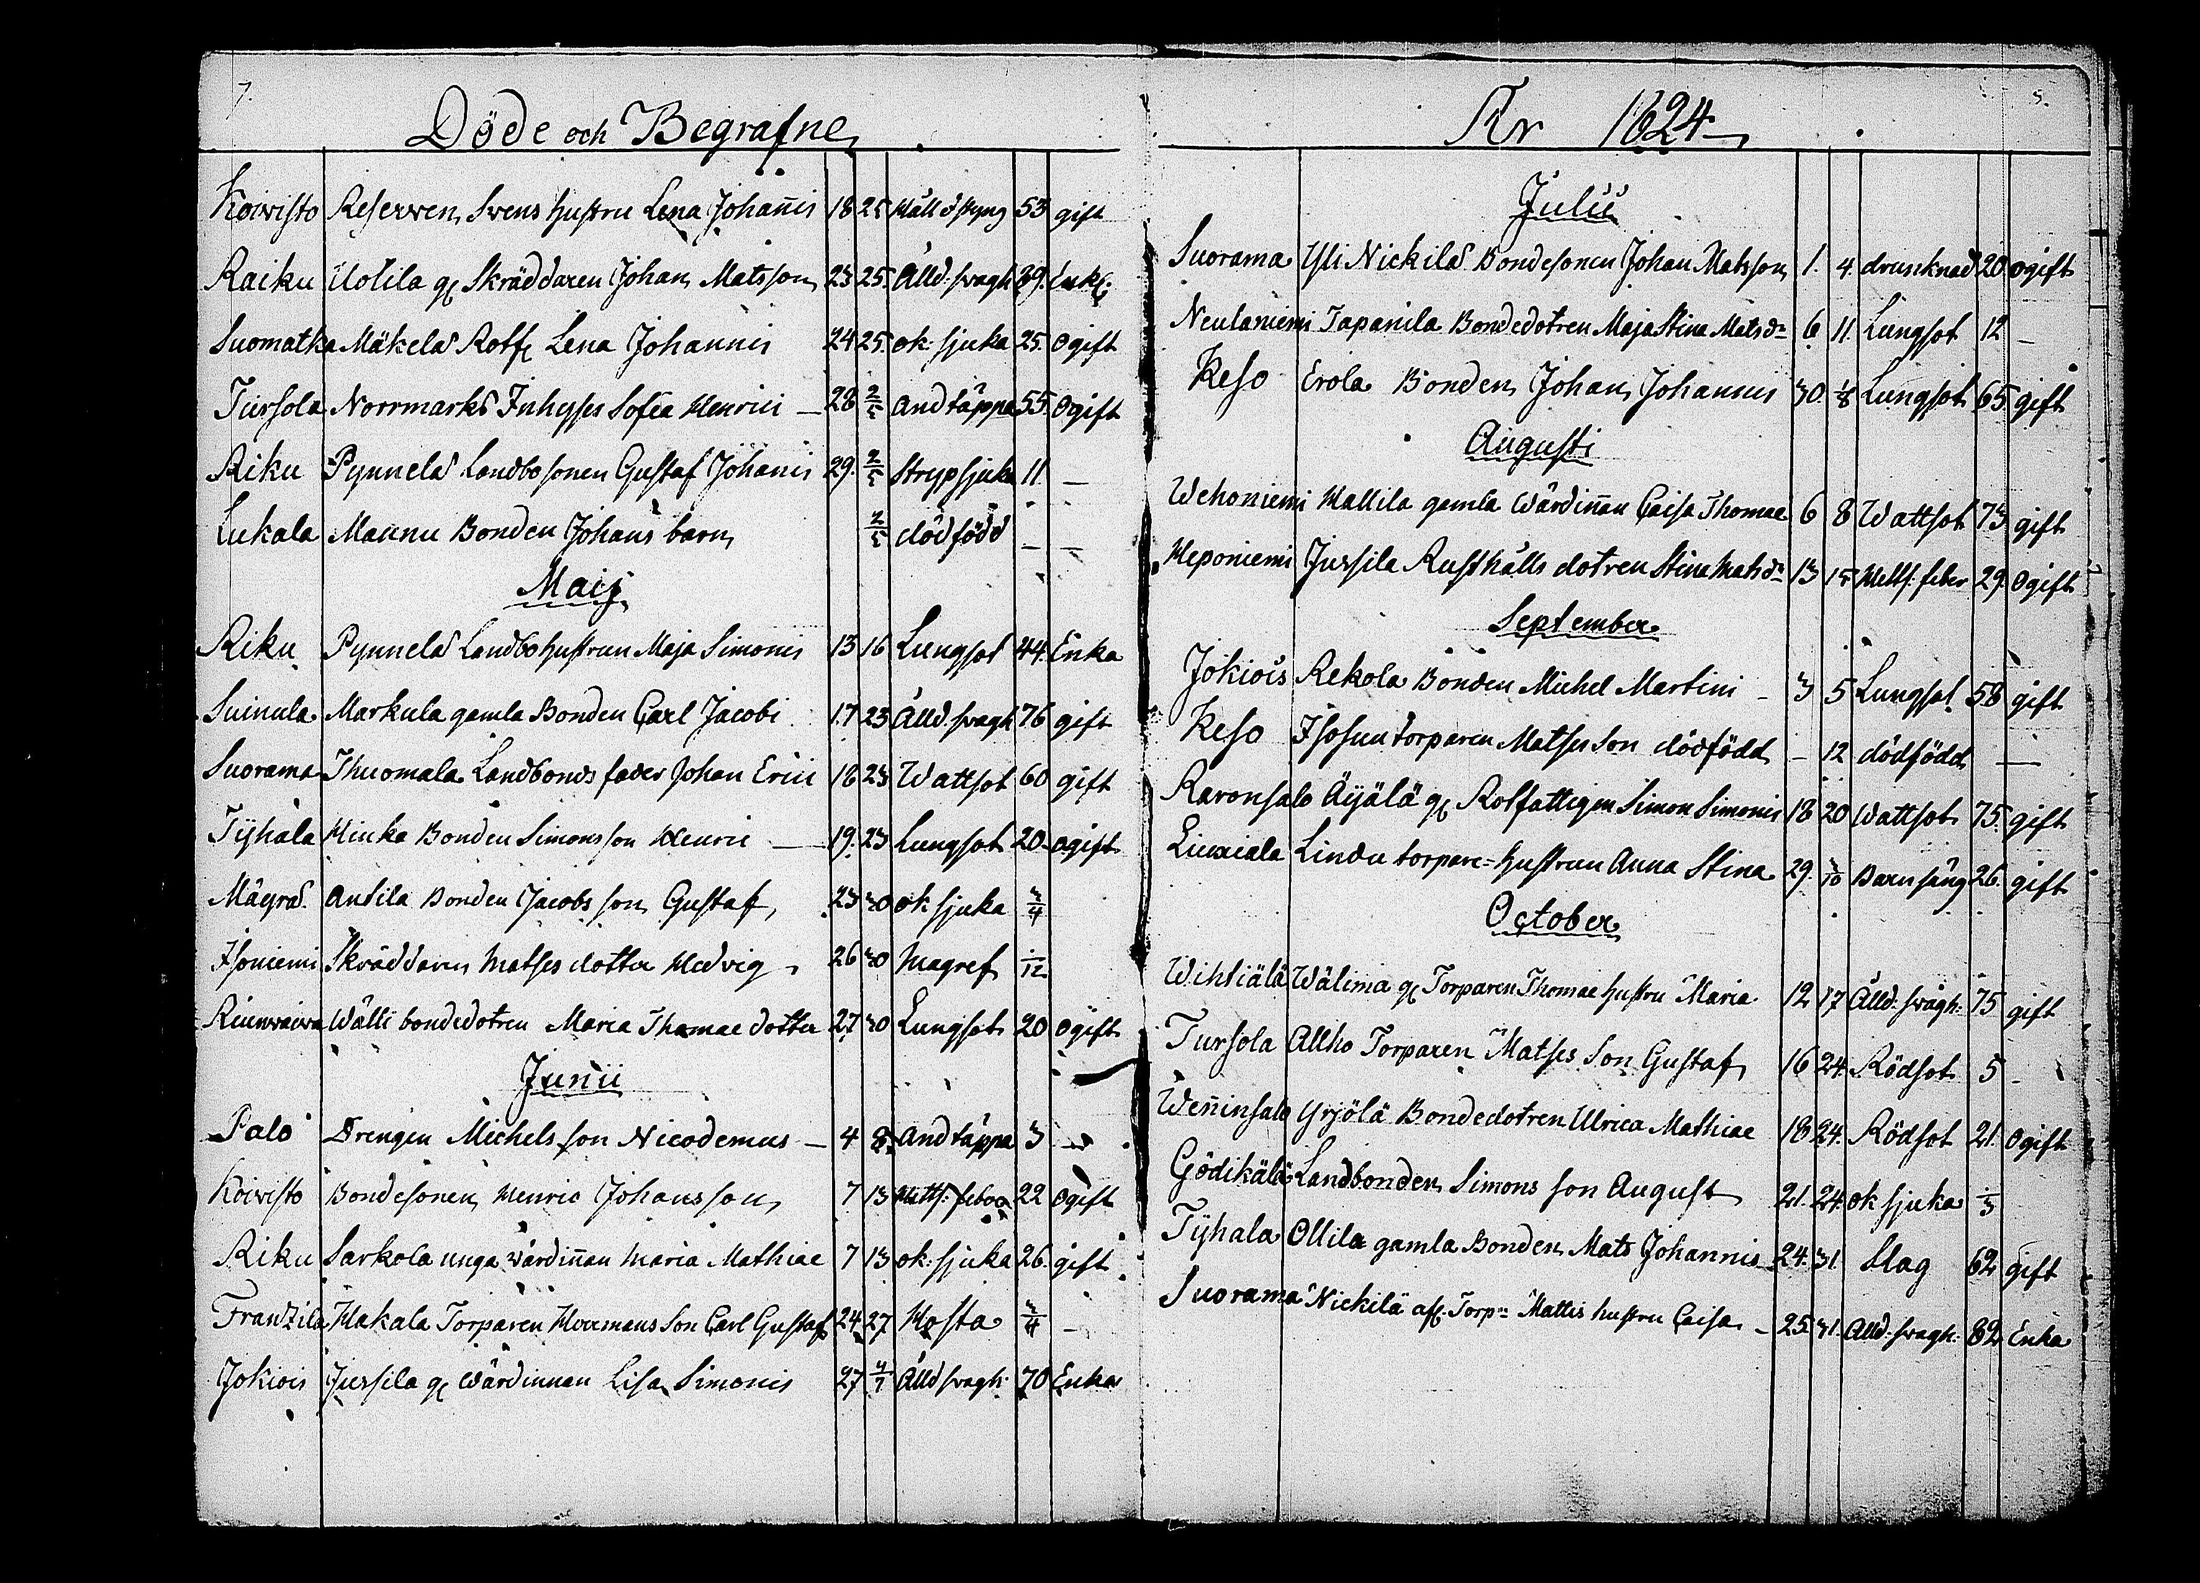 7.
Döde och Begrafne
Koivisto Reserven Svens hustru Lena Johan̄is 18 25 Håll o styng 53 gift
Raiku Uotila gl Skräddaren Johan Matsson 23 25. Ålld: svagh 89. Enkl:
Suomatka Mäkelä Rotfl Lena Johannis 24 25. ok: sjuka 25. Ogift
Tursola Norrmarks Inhyses Sofia Henrici — 28 2/5 Andtäppa 55. Ogift
Riku Pynnelä Landbosonen Gustaf Johanis 29. 2/5 Strypsjuka 11. —
Lukala Maunu Bonden Johans barn 2/5 dödfödd — —
Maij
Riku Pynnelä Landbohustrun Maja Simonis 13 16 Lungsot 44. Enka
Suinula Markula gamla Bonden Carl Jacobi 17 23 Ålld: svagh 76 gift
Suorama Thuomala Landbonds fader Johan Erici 18 23 Wattsot 60 gift
Tÿhälä Hinka Bonden Simons son Henric — 19. 23 Lungsot 20. Ogift
Mägrä. Antila Bonden Jacobs son Gustaf 23 30 ok sjuka 3/4
Isoniemi Skräddaren Matses dotter Hedvig 26 30 Magref 1/12
Riunvaiva Wälli bondedotren Maria Thomae dotter 27 30 Lungsot 20 Ogift
Junii
Palo Drengen Michels son Nicodemus — 4 8. Andtäppa 3 —
Koivisto Bondesonen Henric Johansson 7 13 Hetts: feber 22 Ogift
Riku Sarkola unga värdin̄an Maria Mathiae 7 13 ok: sjuka 26. gift
Franzila Hakala Torparen Hermans Son Carl Gustaf 24 27 Hosta 3/4 —
Jokiois Jussila gl Wärdinnan Lisa Simonis 27 4/7 Ålld svagh: 70 Enka
År 1824 5.
Julii
Suorama Yli Nickilä Bondesonen Johan Matsson 1. 4. drunknad 20. ogift
Neulaniemi Tapanila Bondedotren Maja Stina Matsdr 6 11. Lungsot 12 —
Keso Erola Bonden Johan Johannis 30. 1/8 Lungsot 65. gift
Augusti
Wehoniemi Mattila gamla Wärdin̄an Caisa Thomae 6 8 Wattsot 73 gift
Heponiemi Jussila Rusthålls dotren Stina Matsdr 13 15 Hetts: feber 29. Ogift
September
Jokiois Rekola Bonden Michel Martini — 3 5 Lungsot 58 gift
Keso Isosuu torparen Matses son dödfödd — 12 dödfödd —
Raronsalo Äijälä gl Rotfattigen Simon Simonis 18 20 Wattsot 75. gift
Liuxiala Lindu torpare=hustrun Anna Stina 29. 3/10 Barnsäng 26. gift
October
Wihtiälä Wälimä gl Torparen Thomae hustru Maria 12 17 Ålld: svagh: 75 gift
Tursola Allho Torparen Matses Son Gustaf 16 24. Rödsot 5 —
Wen̄insalo Yrjölä Bondedotren Ulrica Mathiae 18 24. Rödsot 21. Ogift
Gödikälä Landbonden Simons son August 21. 24. ok sjuka 1/3
Tÿhälä Ollila gamla Bonden Mats Johannis 24. 31. Slag 62 gift
Suorama Nickilä afl. Torpn Mattis hustru Caisa — 25. 31. Ålld: svagh: 82 Enka